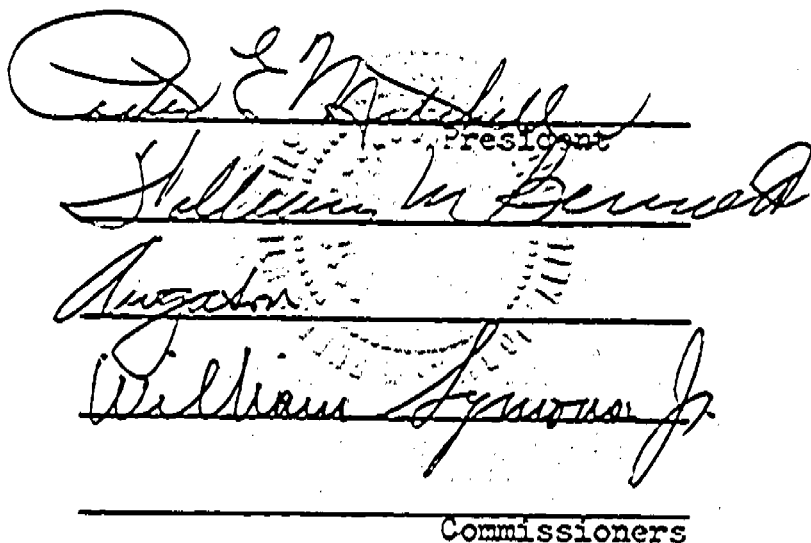 Peter E Mitchell
President
William M Bennett
William Symons Jr.
Commissioners